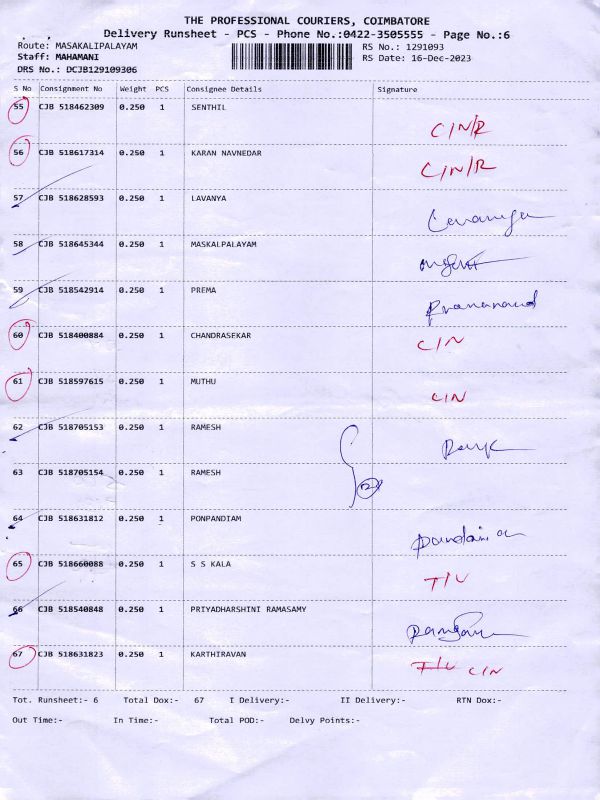 THE PROFESSIONAL COURIERS, COIMBATORE
Delivery Runsheet - PCS - Phone No.:0422-3505555 - Page No.:6
Route: MASAKALIPALAYAM RS No.: 1291093
Staff: MAHAMANI RS Date: 16-Dec-2023
DRS No.: DCJB129109306
S No Consignment No Weight PCS Consignee Details Signature
55 CJB 518462309 0.250 1 SENTHIL
C/N/R
56 CJB 518617314 0.250 1 KARAN NAVNEDAR
C/N/R
57 CJB 518628593 0.250 1 LAVANYA
58 CJB 518645344 0.250 1 MASKALPALAYAM
59 CJB 518542914 0.250 1 PREMA
60 CJB 518400884 0.250 1 CHANDRASEKAR
C/N
61 CJB 518597615 0.250 1 MUTHU
C/N
62 CJB 518705153 0.250 1 RAMESH
63 CJB 518705154 0.250 1 RAMESH
64 CJB 518631812 0.250 1 PONPANDIAM
65 CJB 518660088 0.250 1 S S KALA
T/U
66 CJB 518540848 0.250 1 PRIYADHARSHINI RAMASAMY
67 CJB 518631823 0.250 1 KARTHIRAVAN
T/U C/N
Tot. Runsheet:- 6 Total Dox:- 67 I Delivery:- II Delivery:- RTN Dox:-
Out Time:- In Time:- Total POD:- Delvy Points:-